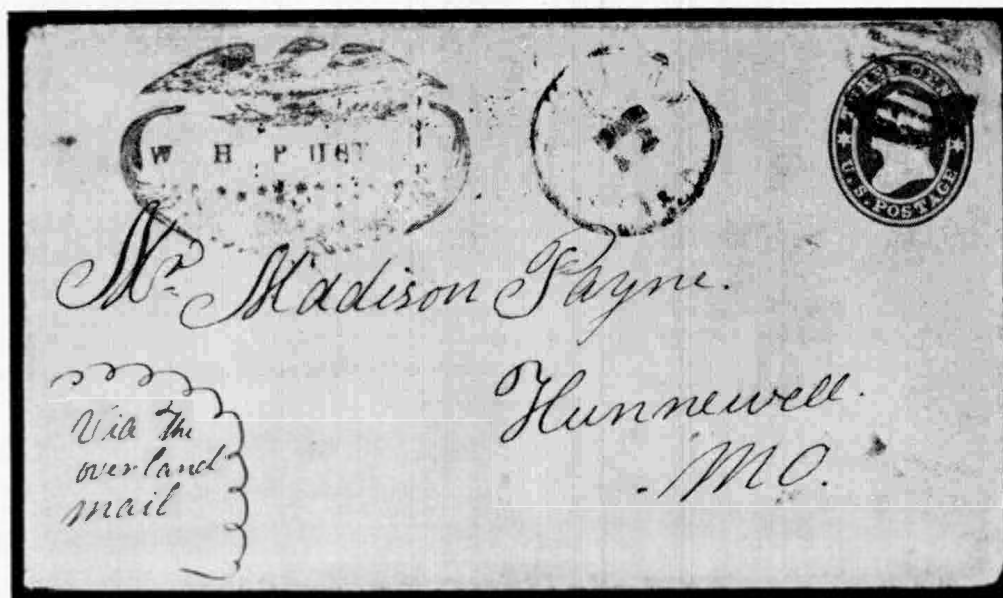 THREE CENTS
U.S. POSTAGE
W H P
Mr. Madison Payne.
Hunnewell.
MO.
Via The
overland
mail